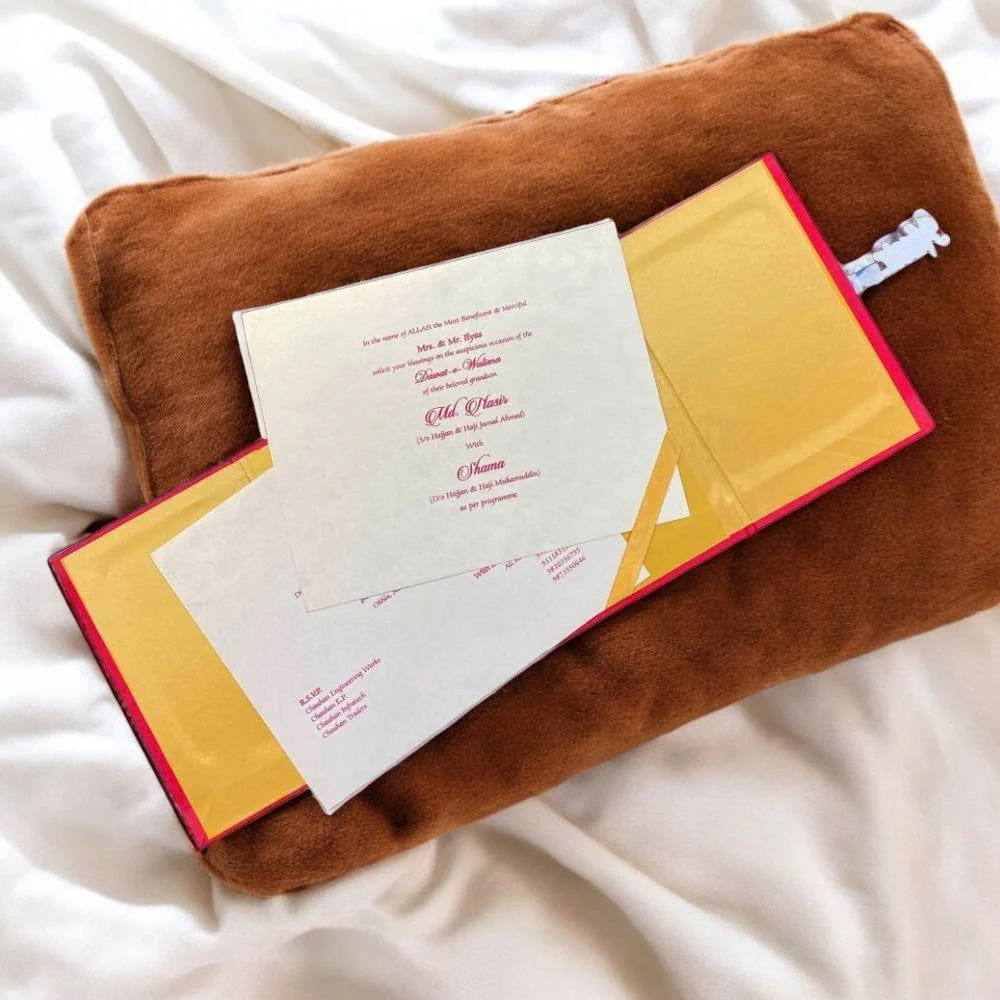 In the name of ALLAH the Most Beneficent & Merciful
Mrs. & Mr. Ilyas
solicit your blessings on the auspicious occasion of the
Dawat-e-Walima
of their beloved grandson
Md. Nasir
(S/o Hajjan & Haji Jamal Ahmed)
With
Shama
(D/o Hajjan & Haji Mukamuddin)
as per programme
With
All
9810356795
9873550646
R.S.V.P.
Chauhan Engineering Works
Chauhan E.P.
Chauhan Infratech
Chauhan Traders